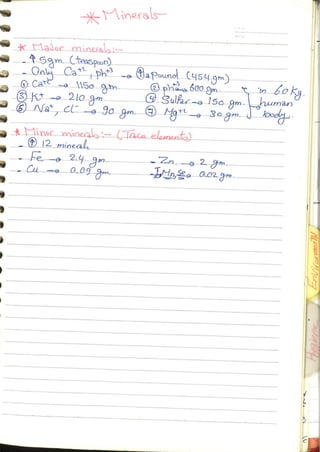 * Minerals
* Mador minerals:-
- ↑ 5gm. (teaspoon)
- Only Ca+2, ph+3 → ↑ a Pound (454 gm)
① Ca+2 → 1150 gm ② ph+3 → 600 gm in 60 kg.
③ K+ → 210 gm ④ Sulfur → 150 gm human
⑤ Na+, cl- → 90 gm ⑦ Mg+2 → 30 gm. body.
* Minor minerals:- (Trace elements)
- ↑ 12 mineral.
- Fe → 2.4 gm - Zn → 2 gm.
- Cu → 0.09 gm - I, Mn, Se → 0.02 gm.
Environmental